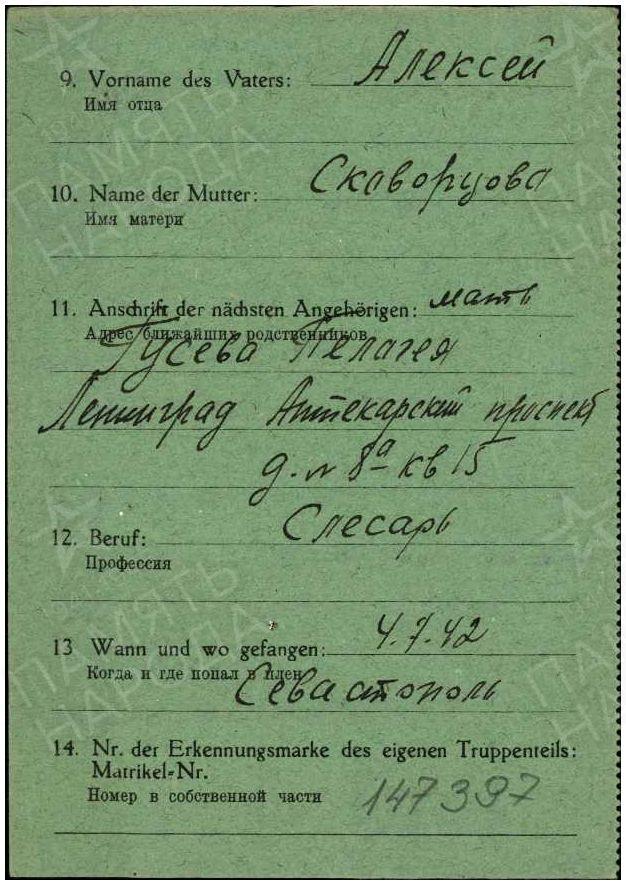 9. Vorname des Vaters: Алексей
Имя отца
10. Name der Mutter: Скворцова
Имя матери
11. Anschrift der nächsten Angehörigen: мать
Адрес ближайших родственников
Гусева Пелагея
Ленинград Аптекарский проспект
д. № 8а кв 15
12. Beruf: Слесарь
Профессия
13 Wann und wo gefangen: 4.7.42
Когда и где попал в плен
Севастополь
14. Nr. der Erkennungsmarke des eigenen Truppenteils:
Matrikel-Nr.
Номер в собственной части 147397
ПАМЯТЬ
НАРОДА
ПАМЯТЬ
НАРОДА